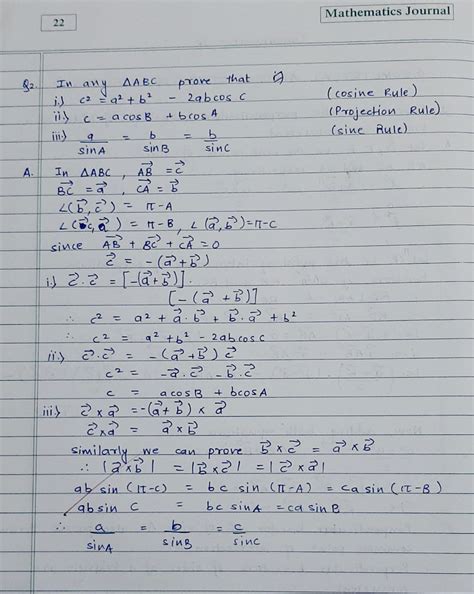 Mathematics Journal
22
Q2. In any △ABC prove that i)
i.) c² = a² + b² - 2abcosC (cosine Rule)
ii) c = acosB + bcosA (Projection Rule)
iii) a/sinA = b/sinB = b/sinC (sine Rule)
A. In △ABC, AB→ = c→
BC→ = a→, CA→ = b→
∠(b→, c→) = π-A
∠(c→, a→) = π-B, ∠(a→, b→) = π-C
since AB→ + BC→ + CA→ = 0
c→ = -(a→ + b→)
i) c→ . c→ = [-(a→ + b→)] .
[-(a→ + b→)]
∴ c² = a² + a→ . b→ + b→ . a→ + b²
∴ c² = a² + b² - 2abcosc
ii.) c→ . c→ = -(a→ + b→) c→
c² = -a→ . c→ - b→ . c→
c = acosB + bcosA
iii) c→ × a→ = -(a→ + b→) × a→
c→ × a→ = a→ × b→
similarly we can prove b→ × c→ = a→ × b→
∴ |a→ × b→| = |b→ × c→| = |c→ × a→|
ab sin (π-c) = bc sin (π-A) = ca sin (π-B)
ab sin C = bc sinA = ca sin B
∴ a/sinA = b/sinB = c/sinC